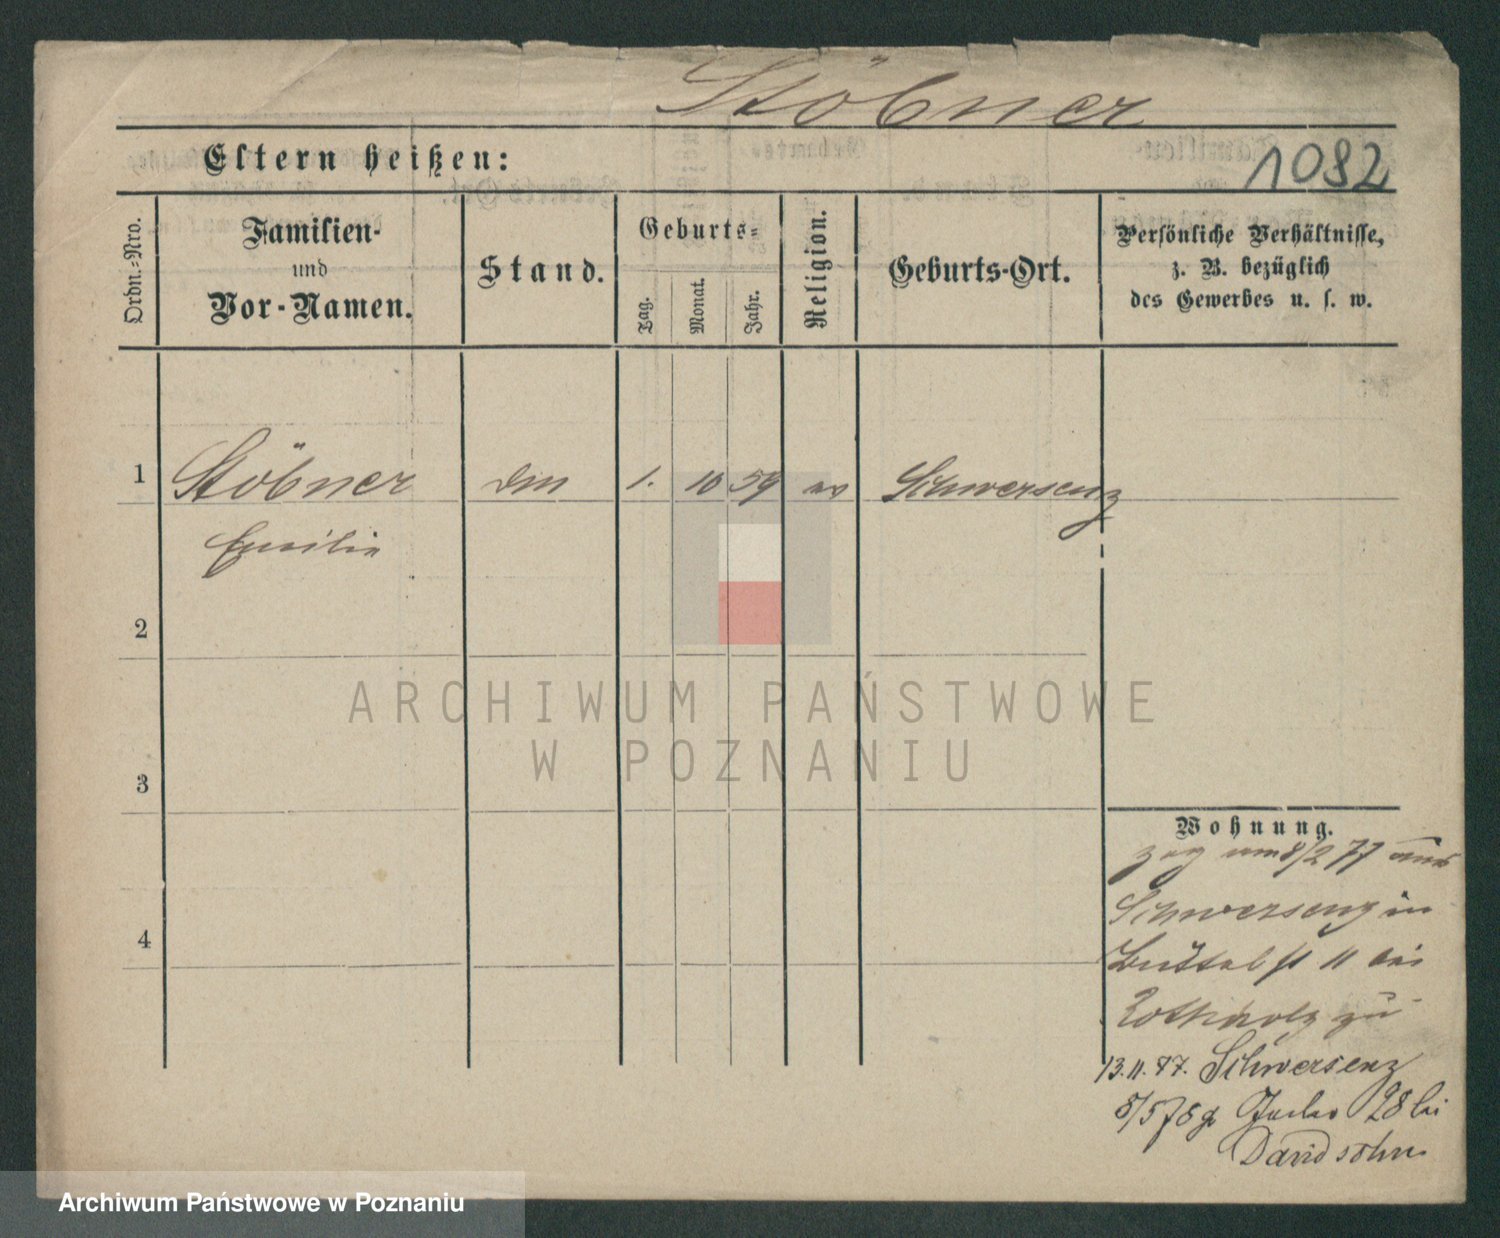 Stöbner
Eltern heißen:
1082
Ordn.-Nro.
Familien-
und
Vor-Namen.
Stand.
Geburts-
Tag.
Monat.
Jahr.
Religion.
Geburts-Ort.
Persönliche Verhältnisse,
z. B. bezüglich
des Gewerbes u. s. w.
1 Stöbner 1. 10 59 ev Schwersenz
Emilie
2
ARCHIWUM PAŃSTWOWE
W POZNANIU
3
4
Wohnung.
zog am 8/2 77 aus
Schwersenz in
11 bei
Rothholz zu
13.11.77. Schwersenz
8/5 78 28 bei
Davidsohn
Archiwum Państwowe w Poznaniu